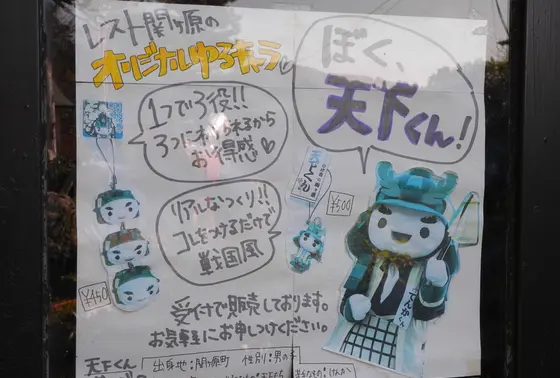 レスト関ヶ原の
オリジナルゆるキャラ
ぼく、
天下くん!
1つで3役!!
3つにわ
れるから
お
得感♡
¥500
リアルなつくり!!
コレをつけるだけで
戦国風
¥450
てんかくん
受付で販売しております。
お気軽にお申しつけください。
天下くん
出身地:関ヶ原町 性別:男の子